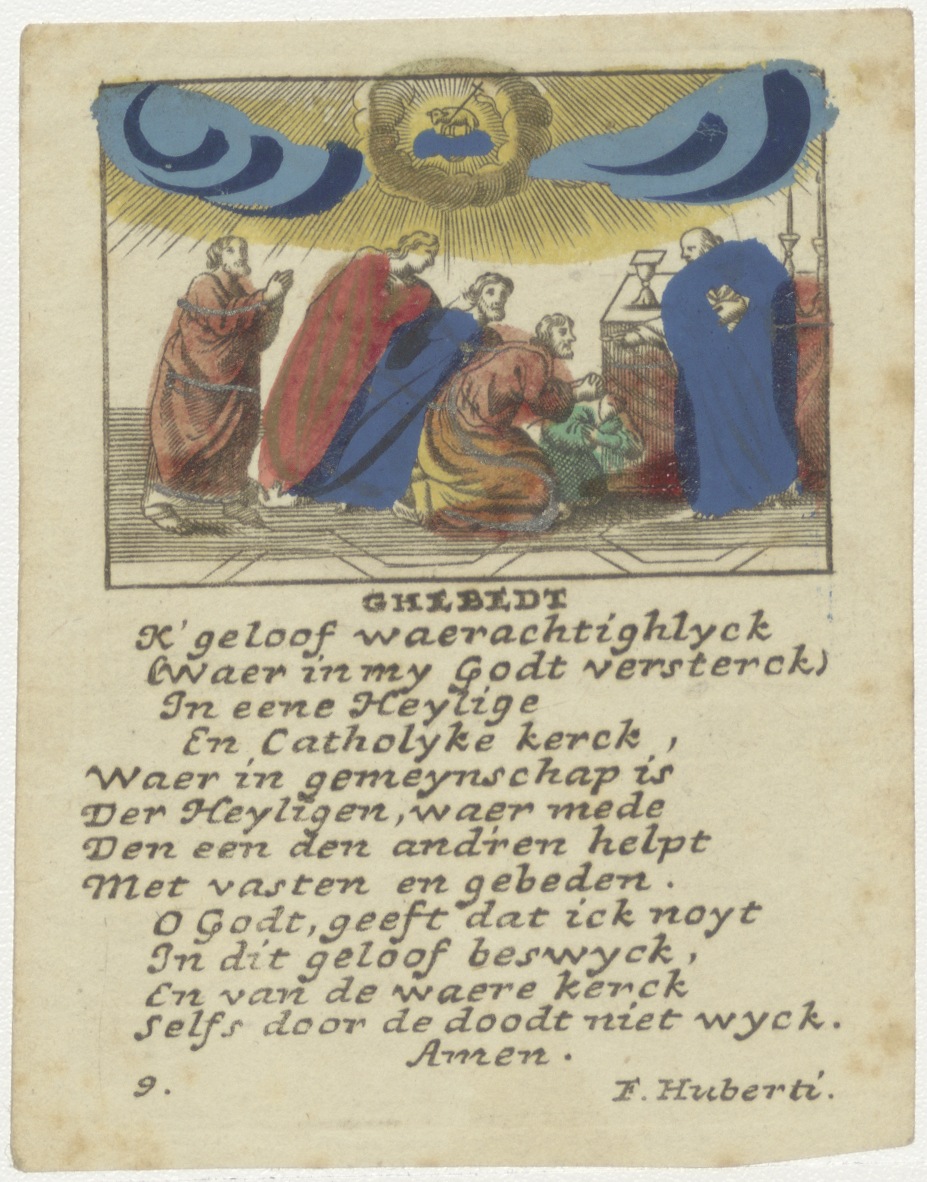 GHEBEDT
K' geloof waerachtighlyck
(Waer in my Godt versterck)
In eene Heylige
En Catholyke kerck,
Waer in gemeynschap is
Der Heyligen, waer mede
Den een den and'ren helpt
Met vasten en gebeden.
O Godt, geeft dat ick noyt
In dit geloof beswyck,
En van de waere kerck
Selfs door de doodt niet wyck.
Amen.
9. F. Huberti.